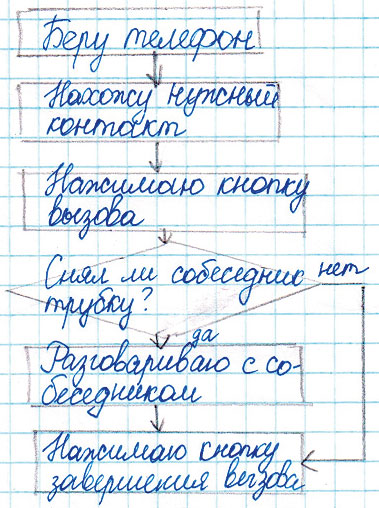 Беру телефон
Нахожу нужный
контакт
Нажимаю кнопку
вызова
Снял ли собеседник
трубку?
нет
да
Разговариваю с со-
беседником
Нажимаю кнопку
завершения вызова